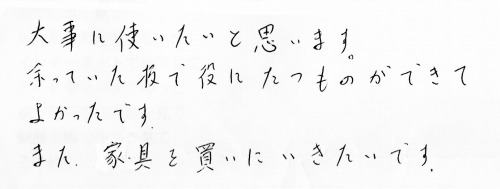 大事に使いたいと思います。
余っていた板で役にたつものができて
よかったです.
また.家具を買いにいきたいです.